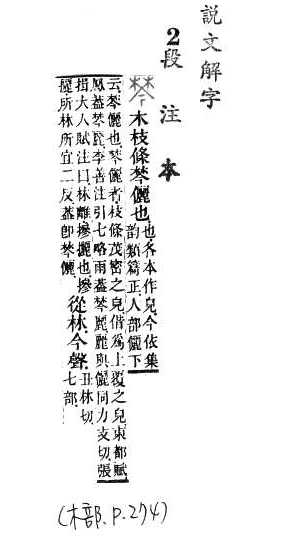 說文解字
2段注本
棽 木枝條棽儷也
也各本作皃今依集
韵類篇正人部儷下
云棽儷也棽儷者枝條茂密之皃借爲上覆之皃東都賦
鳳葢棽麗李善注引七略雨葢棽麗麗與儷同力支切張
揖大人賦注曰林離摻攦也摻
攦所林所宜二反葢卽棽儷
從林今聲
丑林切
七部
(木部.P.274)